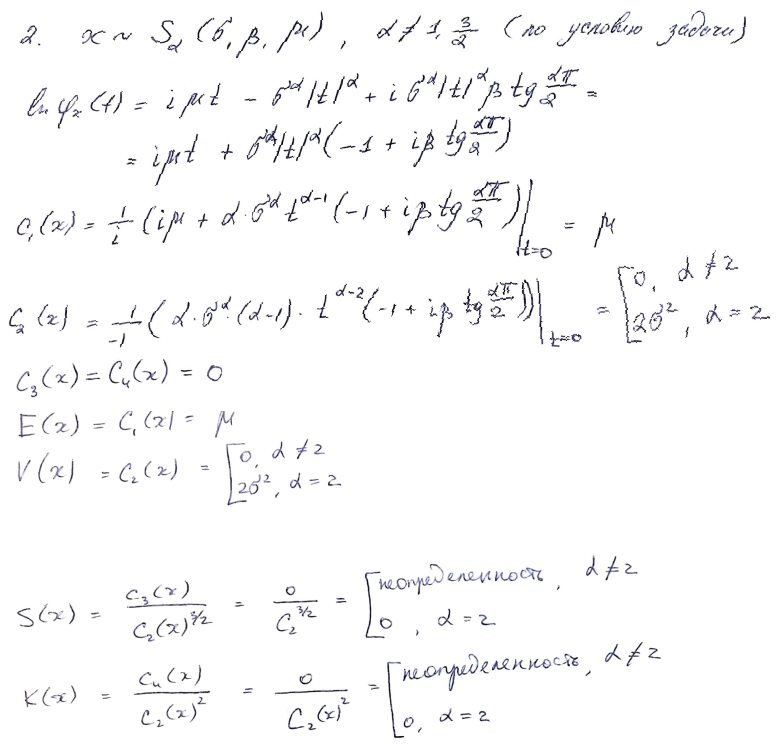 2. x ~ S_α (σ, β, μ), α ≠ 1, 3/2 (по условию задачи)
ln φ_x (t) = iμt - σ^α |t|^α + i σ^α |t|^α β tg απ/2 =
= iμt + σ^α |t|^α (-1 + iβ tg απ/2)
C_1(x) = 1/i (iμ + α · σ^α t^(α-1) (-1 + iβ tg απ/2)) |_(t=0) = μ
C_2 (x) = 1/-1 (α · σ^α · (α-1) · t^(α-2) (-1 + iβ tg απ/2)) |_(t=0) = [ 0, α ≠ 2 ; 2σ^2, α = 2
C_3(x) = C_4(x) = 0
E(x) = C_1(x) = μ
V(x) = C_2(x) = [ 0, α ≠ 2 ; 2σ^2, α = 2
S(x) = C_3(x) / C_2(x)^(3/2) = 0 / C_2^(3/2) = [ неопределенность, α ≠ 2 ; 0, α = 2
K(x) = C_4(x) / C_2(x)^2 = 0 / C_2(x)^2 = [ неопределенность, α ≠ 2 ; 0, α = 2